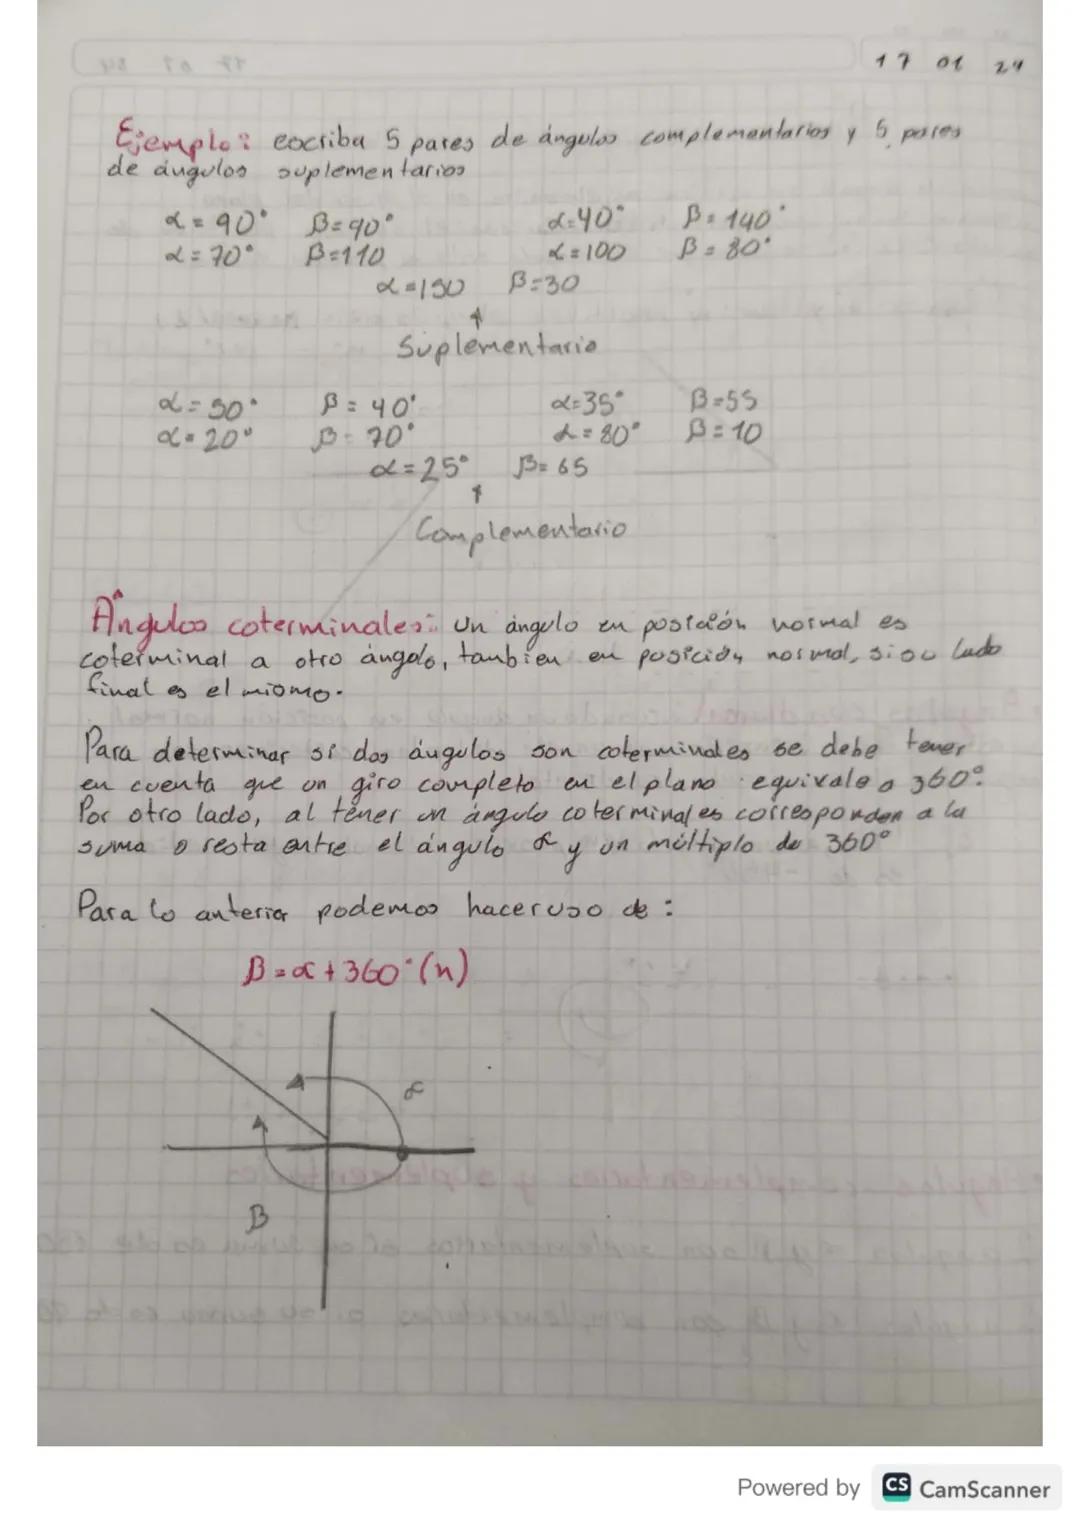 17 01 24
Ejemplo: escriba 5 pares de ángulos complementarios y 5 pares
de ángulos suplementarios
α = 90° β = 90° α = 40° β = 140°
α = 70° β = 110 α = 100 β = 80°
α = 150 β = 30
Suplementario
α = 50° β = 40° α = 35° β = 55
α = 20° β = 70° α = 80° β = 10
α = 25° β = 65
Complementario
Ángulos coterminales: un ángulo en posición normal es
coterminal a otro ángulo, tambien en posición normal, si su lado
final es el mismo.
Para determinar si dos ángulos son coterminales se debe tener
en cuenta que un giro completo en el plano equivale a 360°.
Por otro lado, al tener un ángulo coterminales corresponden a la
suma o resta entre el ángulo α y un múltiplo de 360°
Para lo anterior podemos hacer uso de:
β = α + 360° (n)
α
β
Powered by CS CamScanner